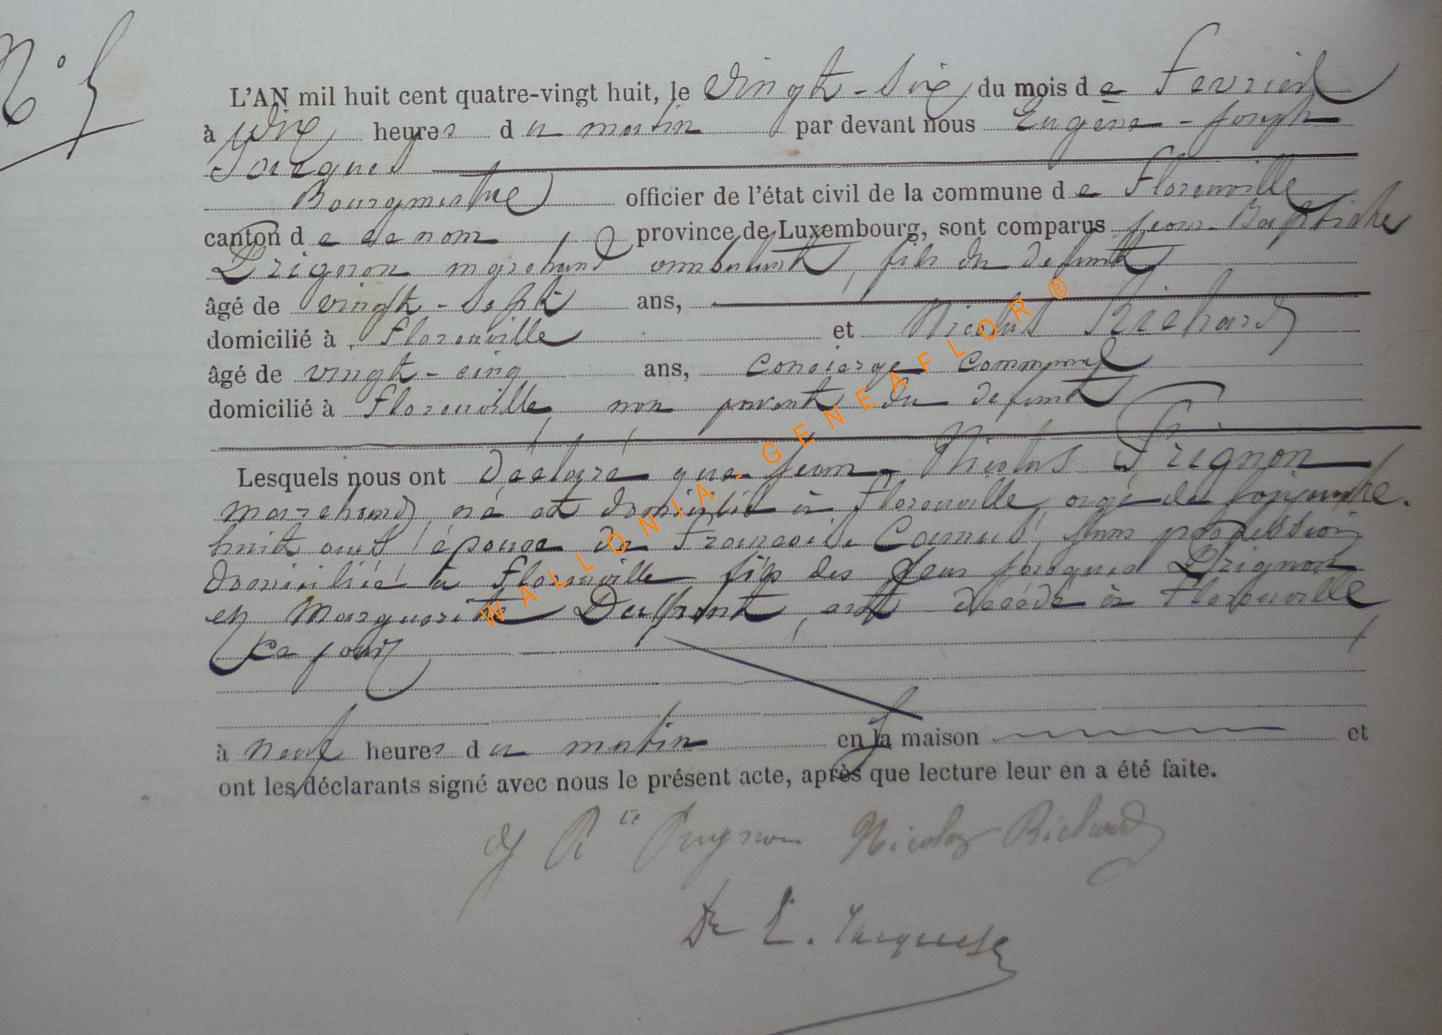 N° 5
L'AN mil huit cent quatre-vingt huit, le vingt-six du mois de Fevrier
à dix heures du matin par devant nous Eugène-Joseph
Jacques
Bourgmestre officier de l'état civil de la commune de Florenville
canton de ce nom province de Luxembourg, sont comparus Jean-Baptiste
Prignon marchand ambulant, fils du defunt
âgé de vingt-sept ans,
domicilié à Florenville et Nicolas Richard
âgé de vingt-cinq ans, concierge communal
domicilié à Florenville, non parent du defunt
Lesquels nous ont déclaré que Jean-Nicolas Prignon
marchand, né et domicilié à Florenville, agé de soixante
huit ans, époux de Françoise Camus, sans profession
domiciliée à Florenville fils des feus Jacques Prignon
et Marguerite Dupont, est décédé à Florenville
ce jour
à neuf heures du matin en la maison et
ont les déclarants signé avec nous le présent acte, après que lecture leur en a été faite.
J Bte Prignon Nicolas Richard
Dr E. Jacques
WALLONIA - GENEAFLOR ®